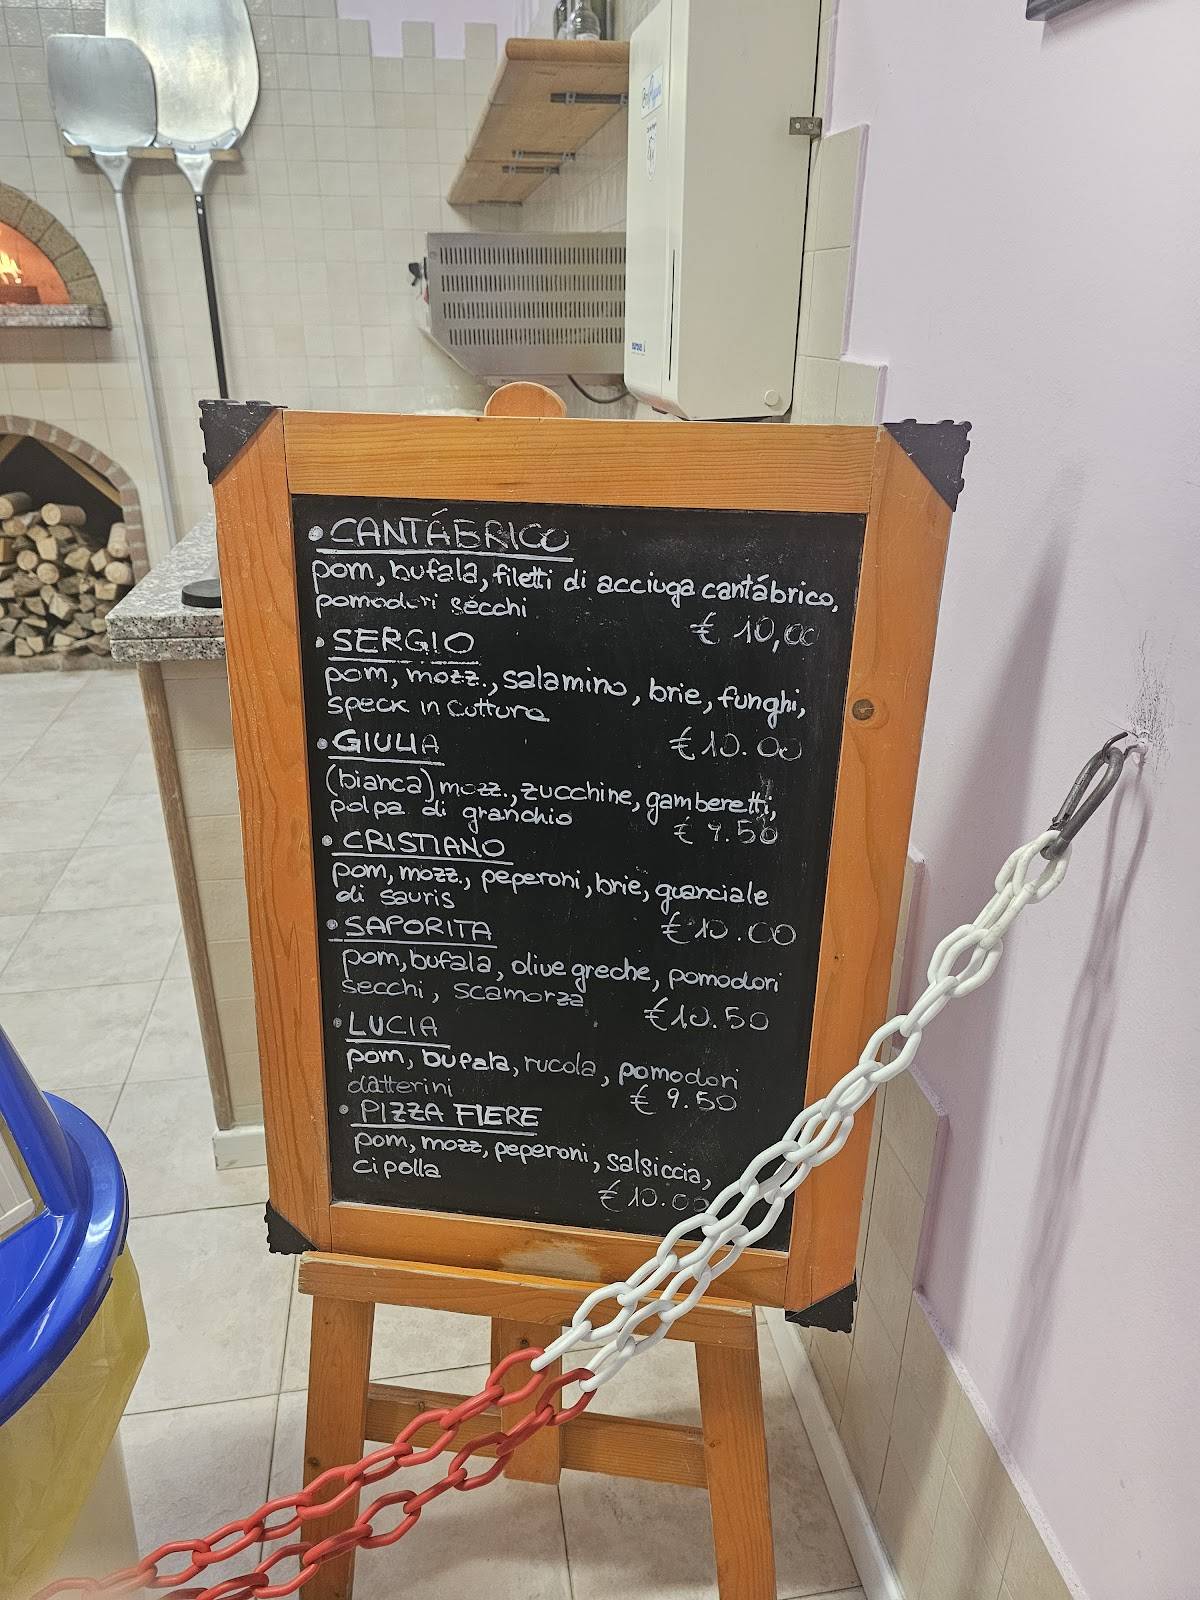 • CANTÁBRICO
pom, bufala, filetti di acciuga cantábrico,
pomodori secchi
€ 10,00
• SERGIO
pom, mozz., salamino, brie, funghi,
speck in cottura
€ 10.00
• GIULIA
(bianca) mozz., zucchine, gamberetti,
polpa di granchio
€ 9.50
• CRISTIANO
pom, mozz., peperoni, brie, guanciale
di sauris
€ 10.00
• SAPORITA
pom, bufala, olive greche, pomodori
secchi, scamorza
€ 10.50
• LUCIA
pom, bufala, rucola, pomodori
datterini
€ 9.50
• PIZZA FIERE
pom, mozz, peperoni, salsiccia,
cipolla
€ 10.00